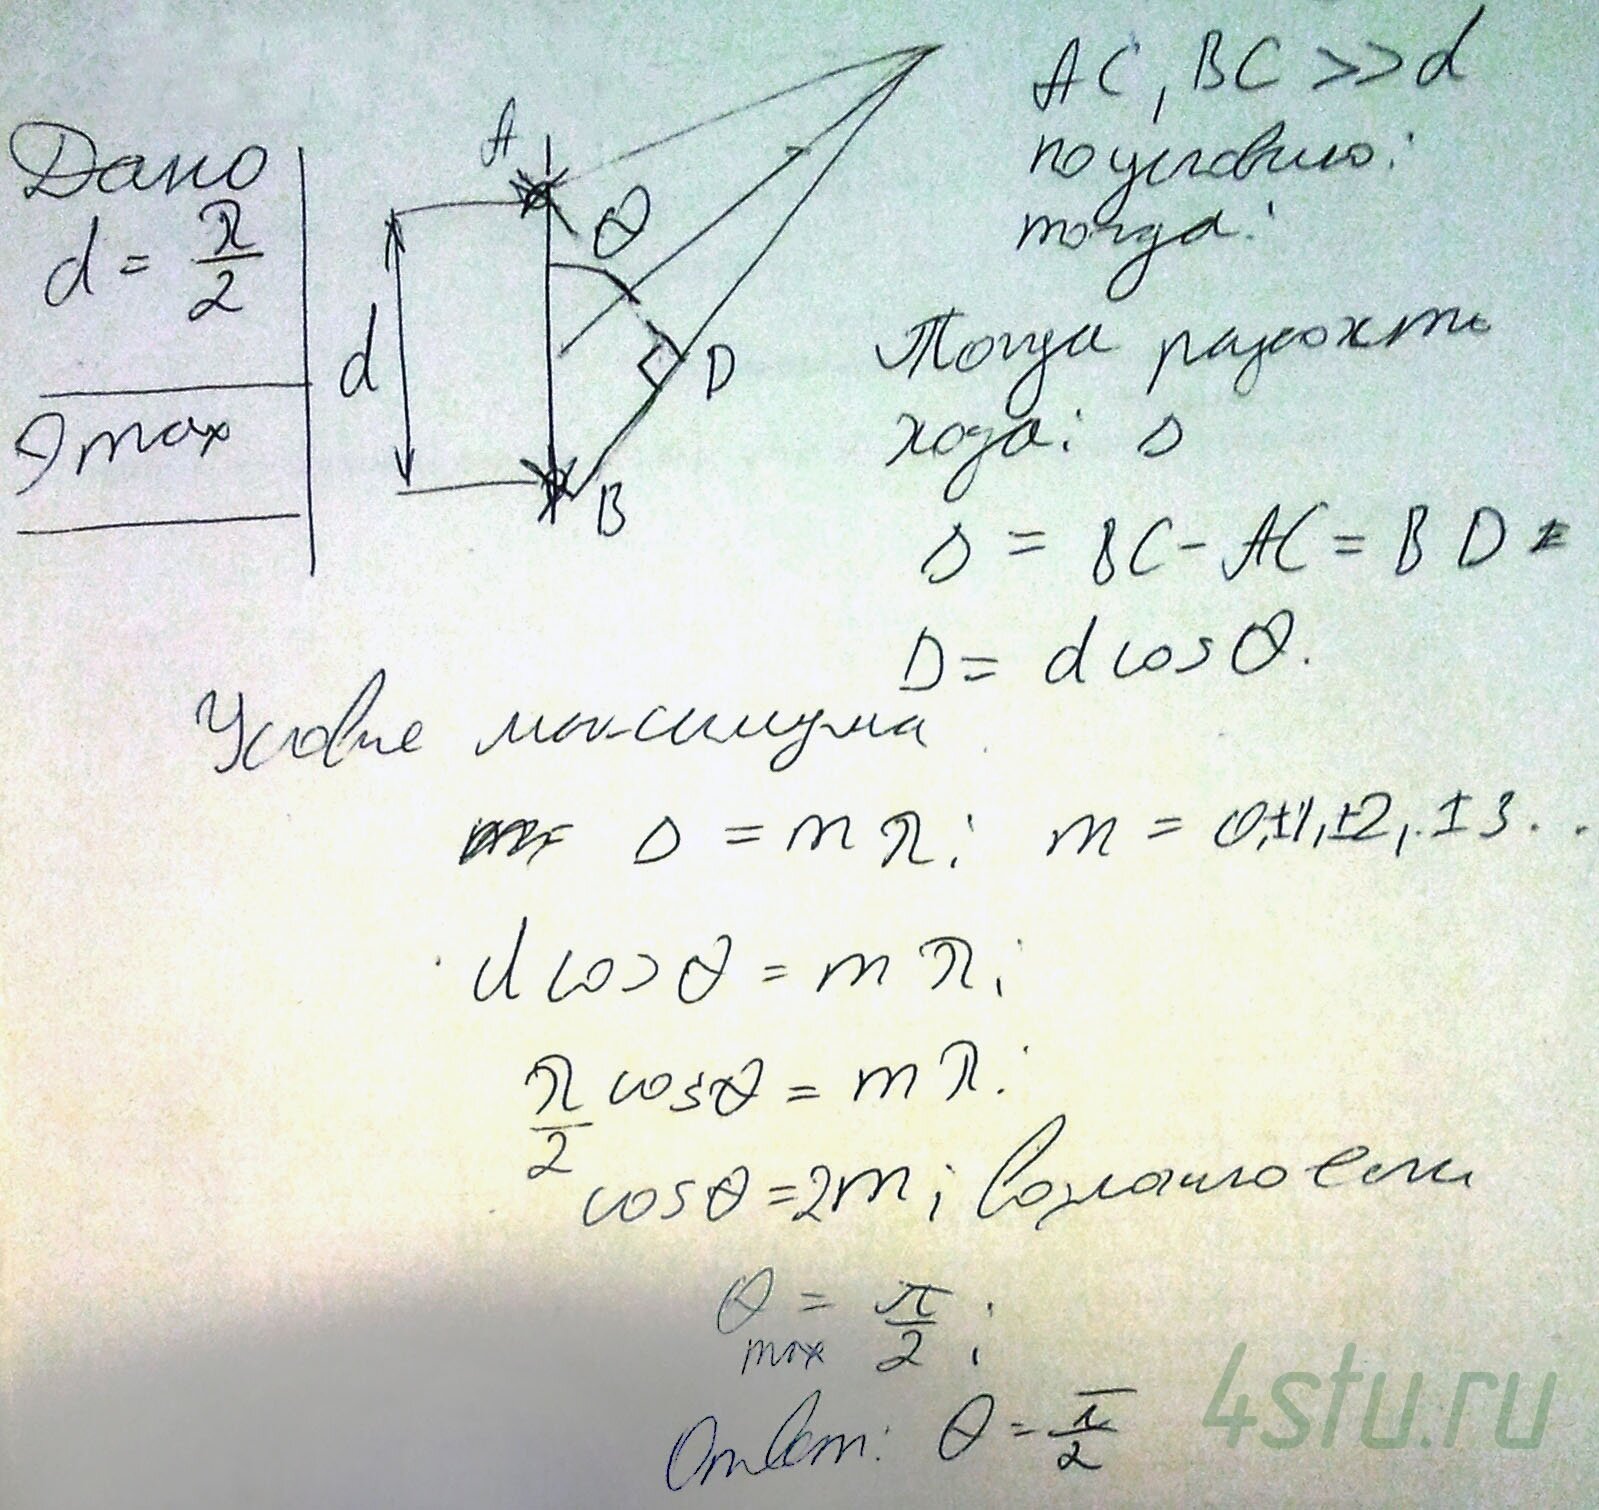 Дано
d = λ/2
θmax
A
θ
d
D
B
AC, BC >> d
по условию:
тогда:
Тогда разность
хода: Δ
Δ = BC - AC = BD =
D = d cos θ.
Условие максимума
Δ = mλ; m = 0,±1,±2,±3...
d cos θ = mλ;
λ/2 cos θ = mλ;
cos θ = 2m; возможно если
θmax = π/2;
Ответ: θ = π/2
4stu.ru